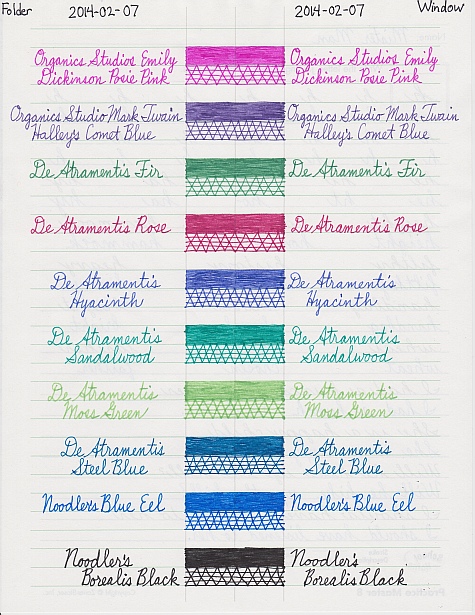 Folder 2014-02-07 2014-02-07 Window
Organics Studios Emily Organics Studios Emily
Dickinson Posie Pink Dickinson Posie Pink
Organics Studio Mark Twain Organics Studio Mark Twain
Halley's Comet Blue Halley's Comet Blue
De Atramentis Fir De Atramentis Fir
De Atramentis Rose De Atramentis Rose
De Atramentis De Atramentis
Hyacinth Hyacinth
De Atramentis De Atramentis
Sandalwood Sandalwood
De Atramentis De Atramentis
Moss Green Moss Green
De Atramentis De Atramentis
Steel Blue Steel Blue
Noodler's Blue Eel Noodler's Blue Eel
Noodler's Noodler's
Borealis Black Borealis Black